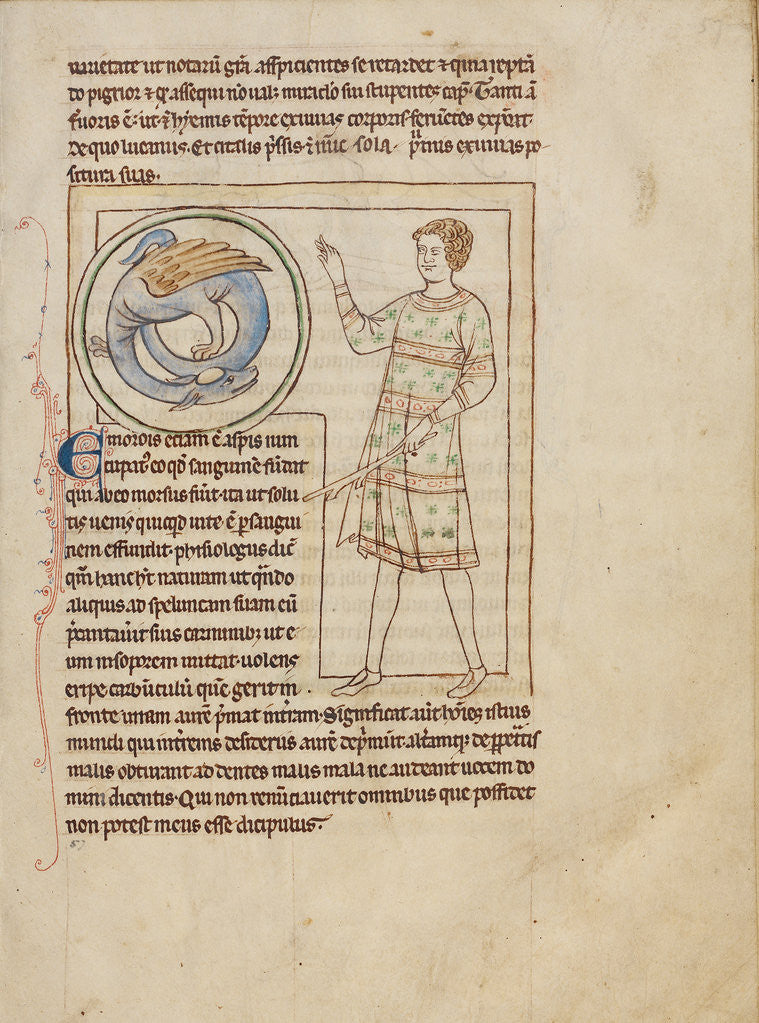 uarietate ut notarū grā aſſpicientes se retardet ⁊ quia reptā
do pigrior ⁊ q̄ assequi nō ual; miraclō sui stupentes cap̄. Tanti ā
feruoris ē: ut ī hyemis tēpore exuuias corporis feruētes exponat.
de quo lucanus. Et scitalis sparsis ī nūc sola pruinis exuuias po
situra suas.
Emorois etiam ē aspis nun
cupatꝰ eo qd̄ sanguinē sudat
qui ab eo morsus fuit. ita ut solu
tis uenis quicqd̄ uite ē ꝑ sangui
nem effundit. phisiologus dic̄
qm̄ hanc hr̄ naturam ut qn̄do
aliquis ad speluncam suam eū
p̄cantauit suis carminibꝫ ut e
um in soporem mittat. uolens
eripe carbūculū quē gerit in
fronte unam aurē p̄mat in tr̄ram. Significat aut̄ hoīes istius
mundi qui tr̄renis desideriis aurē dep̄munt. altam qꝫ de ꝑpetratis
malis obturant addentes malis mala ne audeant uocem do
mini dicentis. Qui non renūciauerit omnibus que possidet
non potest meus esse dicipulus.